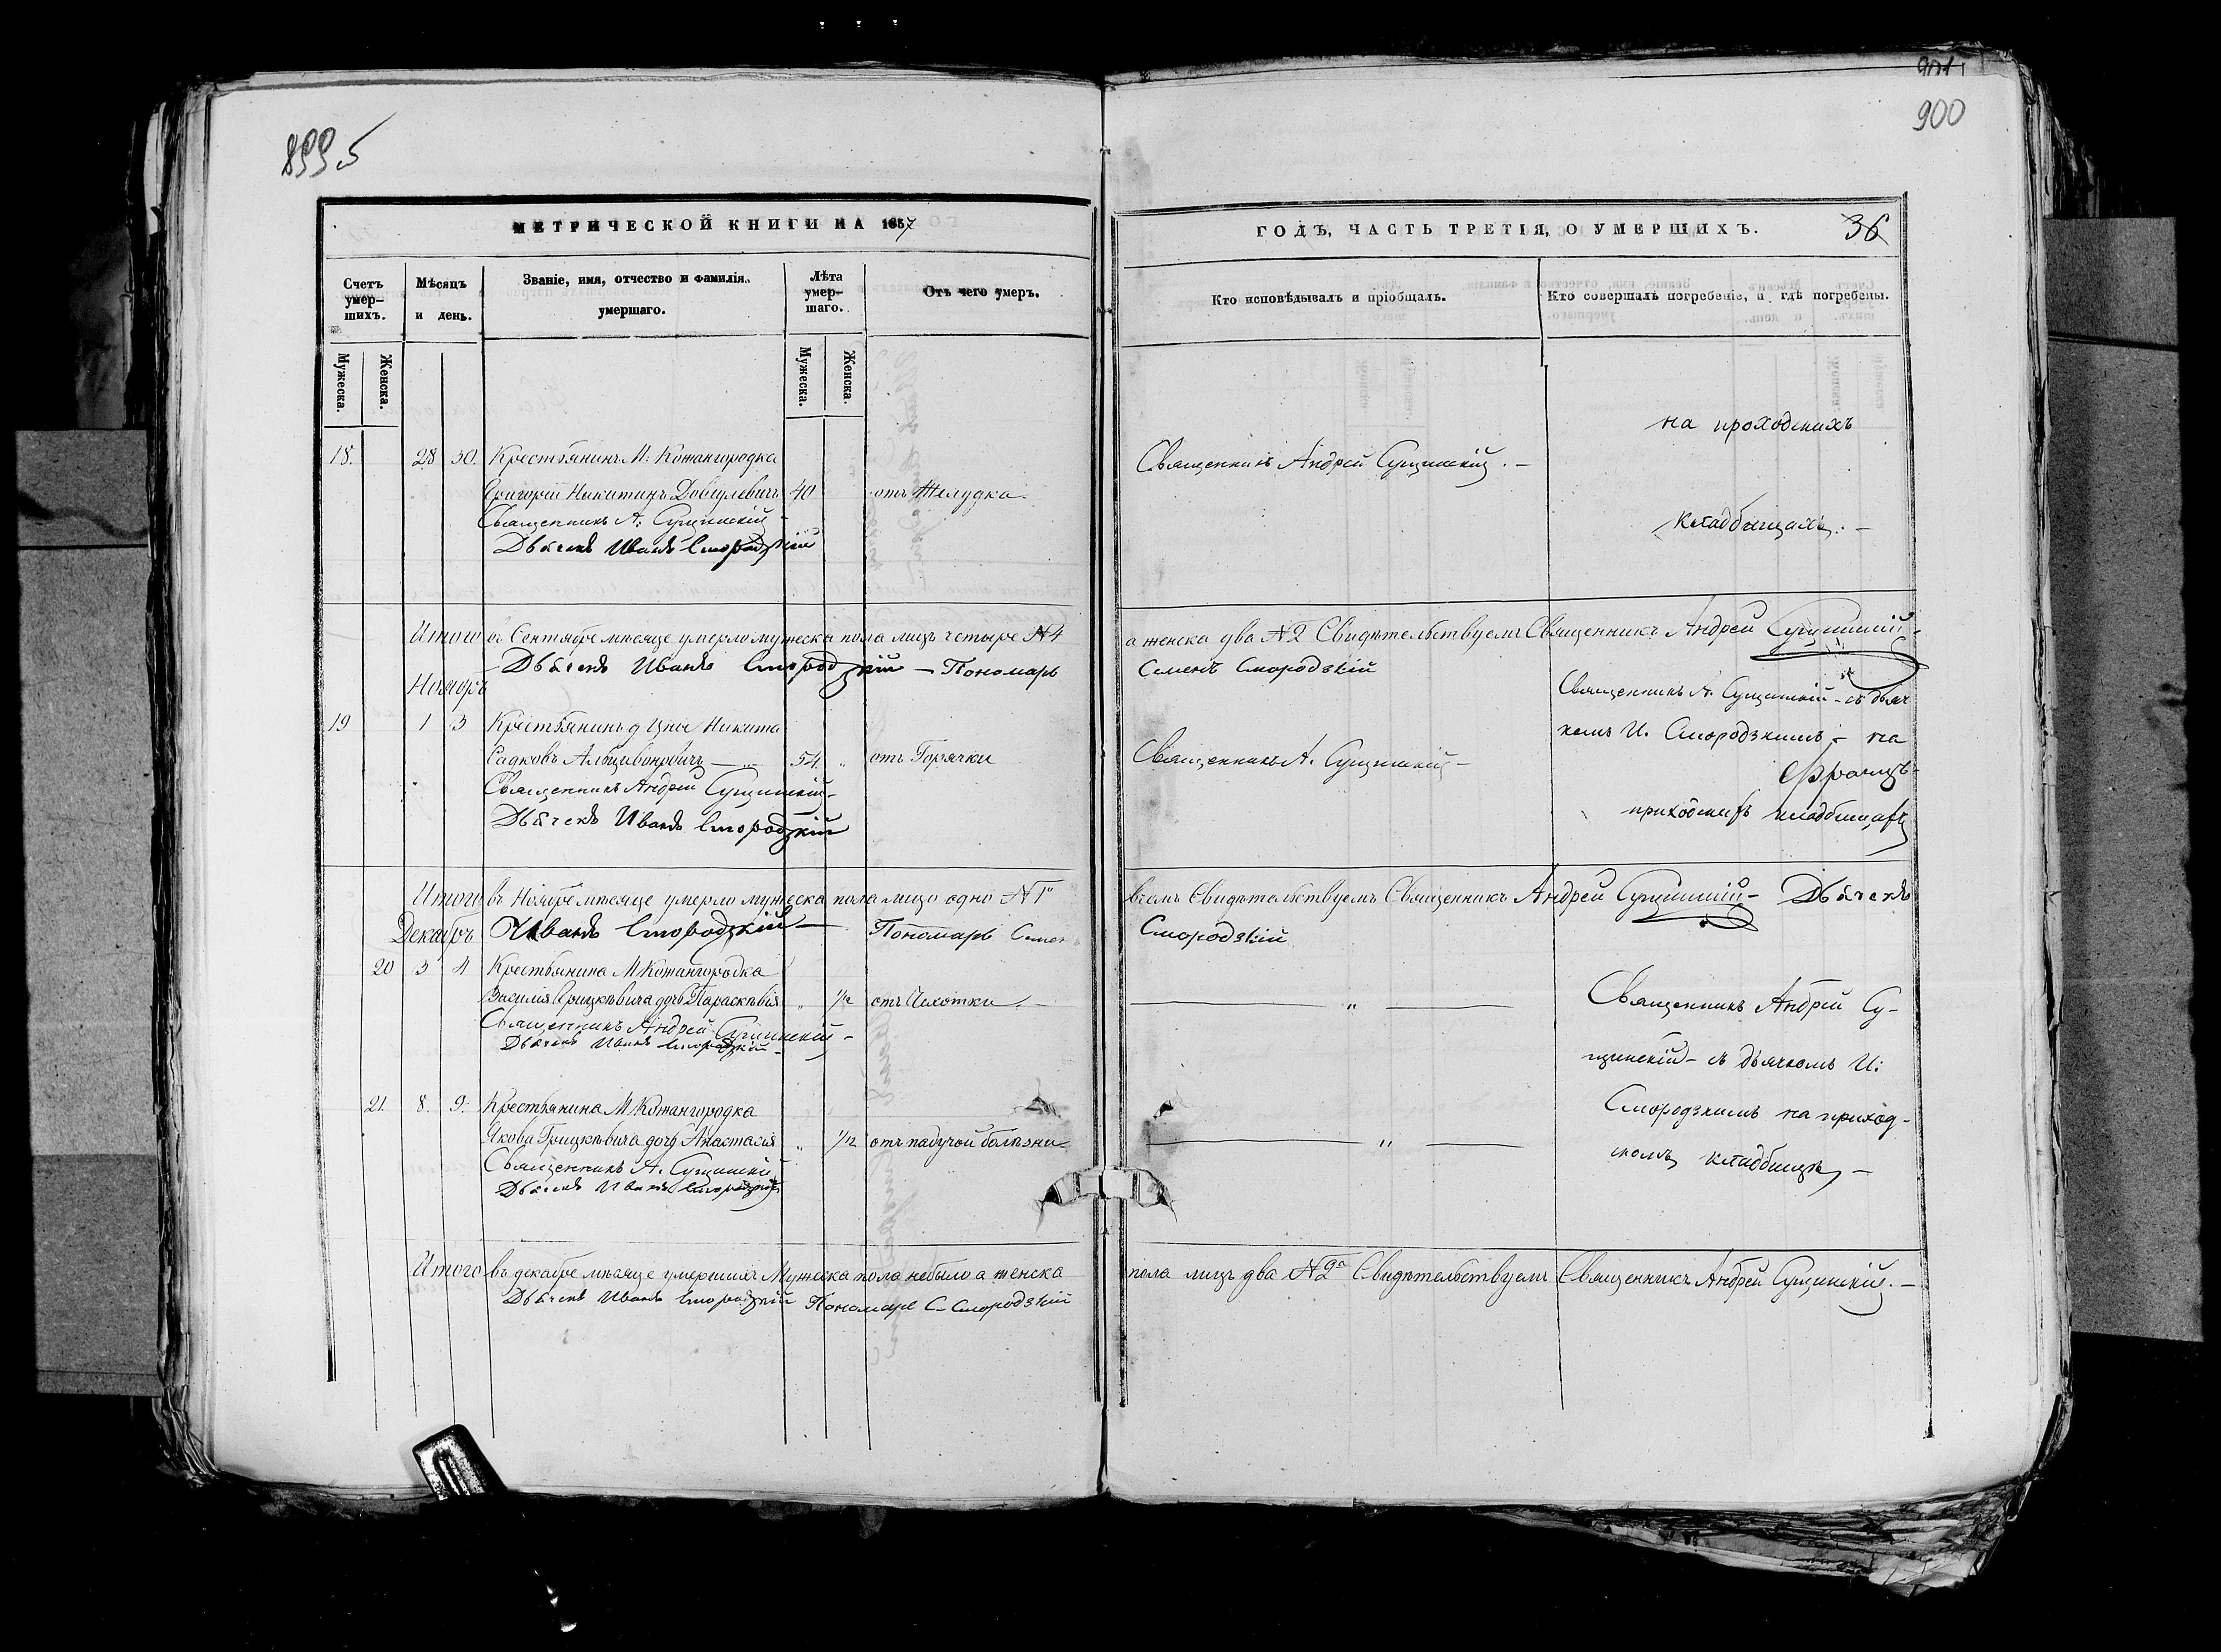 899 об
901
900
МЕТРИЧЕСКОЙ КНИГИ НА 1857
Счетъ умер-шихъ.
Мѣсяцъ и день.
Званіе, имя, отчество и фамилія умершаго.
Лѣта умер-шаго.
Отъ чего умеръ.
Мужеска.
Женска.
Мужеска.
Женска.
18. 28 30. Крестьянинъ М: Кожангородка
Григорій Никитинъ 40 отъ Желудка
Священникъ А: Сущинскій
Дьячекъ Иванъ Смородзкій
Итого въ Сентябре мѣсяце умерло мужеска пола лицъ четыре №4
Дьячекъ Иванъ Смородзкій – Пономарь
Ноябрь
19 1 3 Крестьянинъ д Цны Никита
Садковъ 54 „ отъ Горячки
Священникъ Андрей Сущинскій
Дьячекъ Иванъ Смородзкій
Итого въ Ноябре мѣсяце умерло мужеска пола лицо одно №1
Декабрь Иванъ Смородзкій – Пономарь Семен
20 3 4 Крестьянина М Кожангородка
Василія Грицкѣвича дочь Параскѣвія „ 1/2 отъ Чахотки
Священникъ Андрей Сущинскій –
Дьячекъ Иванъ Смородзкій
21. 8. 9. Крестьянина М Кожангородка
Якова Грицкѣвича дочь Анастасія „ 1/2 отъ падучой болѣзни
Священникъ А. Сущинскій
Дьячекъ Иванъ Смородзкій
Итого въ декабре мѣсяце умершихъ Мужеска пола небыло а женска
Дьячекъ Иванъ Смородзкій Пономарь С. Смородзкій
ГОДЪ, ЧАСТЬ ТРЕТІЯ, О УМЕРШИХЪ.
36
Кто исповѣдывалъ и пріобщалъ.
Кто совершалъ погребеніе, и гдѣ погребены.
на проходскихъ
Священникъ Андрей Сущинскій. –
кладбищахъ. –
а женска два №2 Свидѣтельствуемъ Священникъ Андрей Сущинскій
Семенъ Смородзкій
Священникъ А. Сущинскій – съ дьяч
комъ И. Смородзкимъ – на
Священникъ А. Сущинскій –
приходскихъ кладбищахъ
Свидѣтельствуемъ Священникъ Андрей Сущинскій – Дьячекъ
Смородзкій
„
Священникъ Андрей Су-
щинскій – съ дьячкомъ И:
Смородзкимъ на приход-
„
скомъ кладбищѣ –
пола лицъ два №2 Свидѣтельствуемъ Священникъ Андрей Сущинскій. –